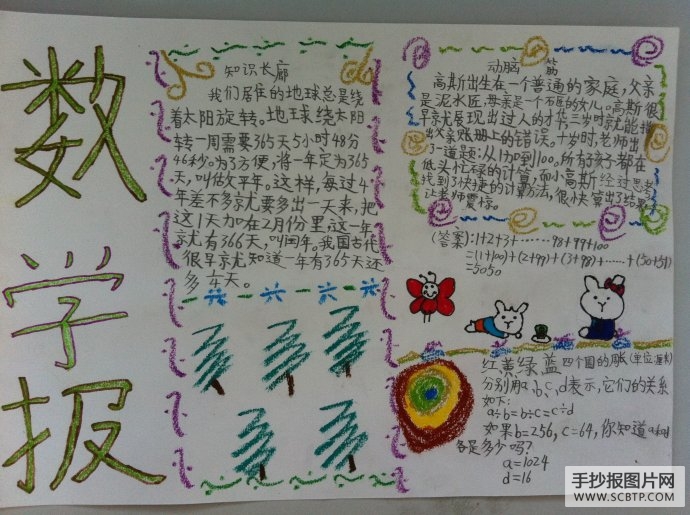 数
学
报
知识长廊
我们居住的地球总是绕
着太阳旋转。地球绕太阳
转一周需要365天5小时48分
46秒。为了方便,将一年定为365
天,叫做平年。这样,每过4
年差不多就要多出一天来,把
这1天加在2月份里,这一年
就有366天,叫闰年。我国古代
很早就知道一年有365天还
多 天。
动脑 筋
高斯出生在一个普通的家庭,父亲
是泥水匠,母亲是一个石匠的女儿。高斯很
早就展现出过人的才华,三岁时就能指
出父亲账册上的错误。十岁时,老师出
了一道题:从1加到100。所有孩子都在
低头忙碌的计算,而小高斯经过思考
找到了快捷的计算方法,很快算出了结果,
让老师震惊。
(答案):1+2+3+……98+99+100
=(1+100)+(2+99)+(3+98)+……+(50+51)
=5050
红黄绿蓝 四个圆的周长(单位:厘米)
分别用a、b、c、d表示,它们的关系
如下:
a÷b=b÷c=c÷d
如果b=256,c=64,你知道a和d
各是多少吗?
a=1024
d=16
手抄报图片网
www.SCBTP.COM